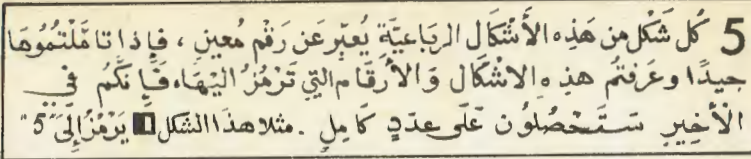 5 كُل شَكْل من هَذِه الأَشْكَال الرَباعيَّة يُعبّر عَن رَقْم مُعين ، فإذا تأمَّلْتمُوهَا
جيدًا وعَرَفتمُ هذِهِ الاشْكَال وَالأَرقَام التي تَرْمُزُ اليْهَا، فَإنكُم في
الأخِيرِ سَتَحْصُلوُن عَلَى عدَدٍ كَامِلٍ . مثلا هذَا الشكل يَرْمُزُ إلَى "5"